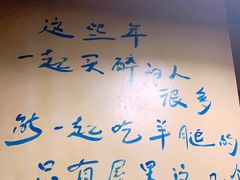 这些年
一起买醉的人
很多
能一起吃羊腿的
只有